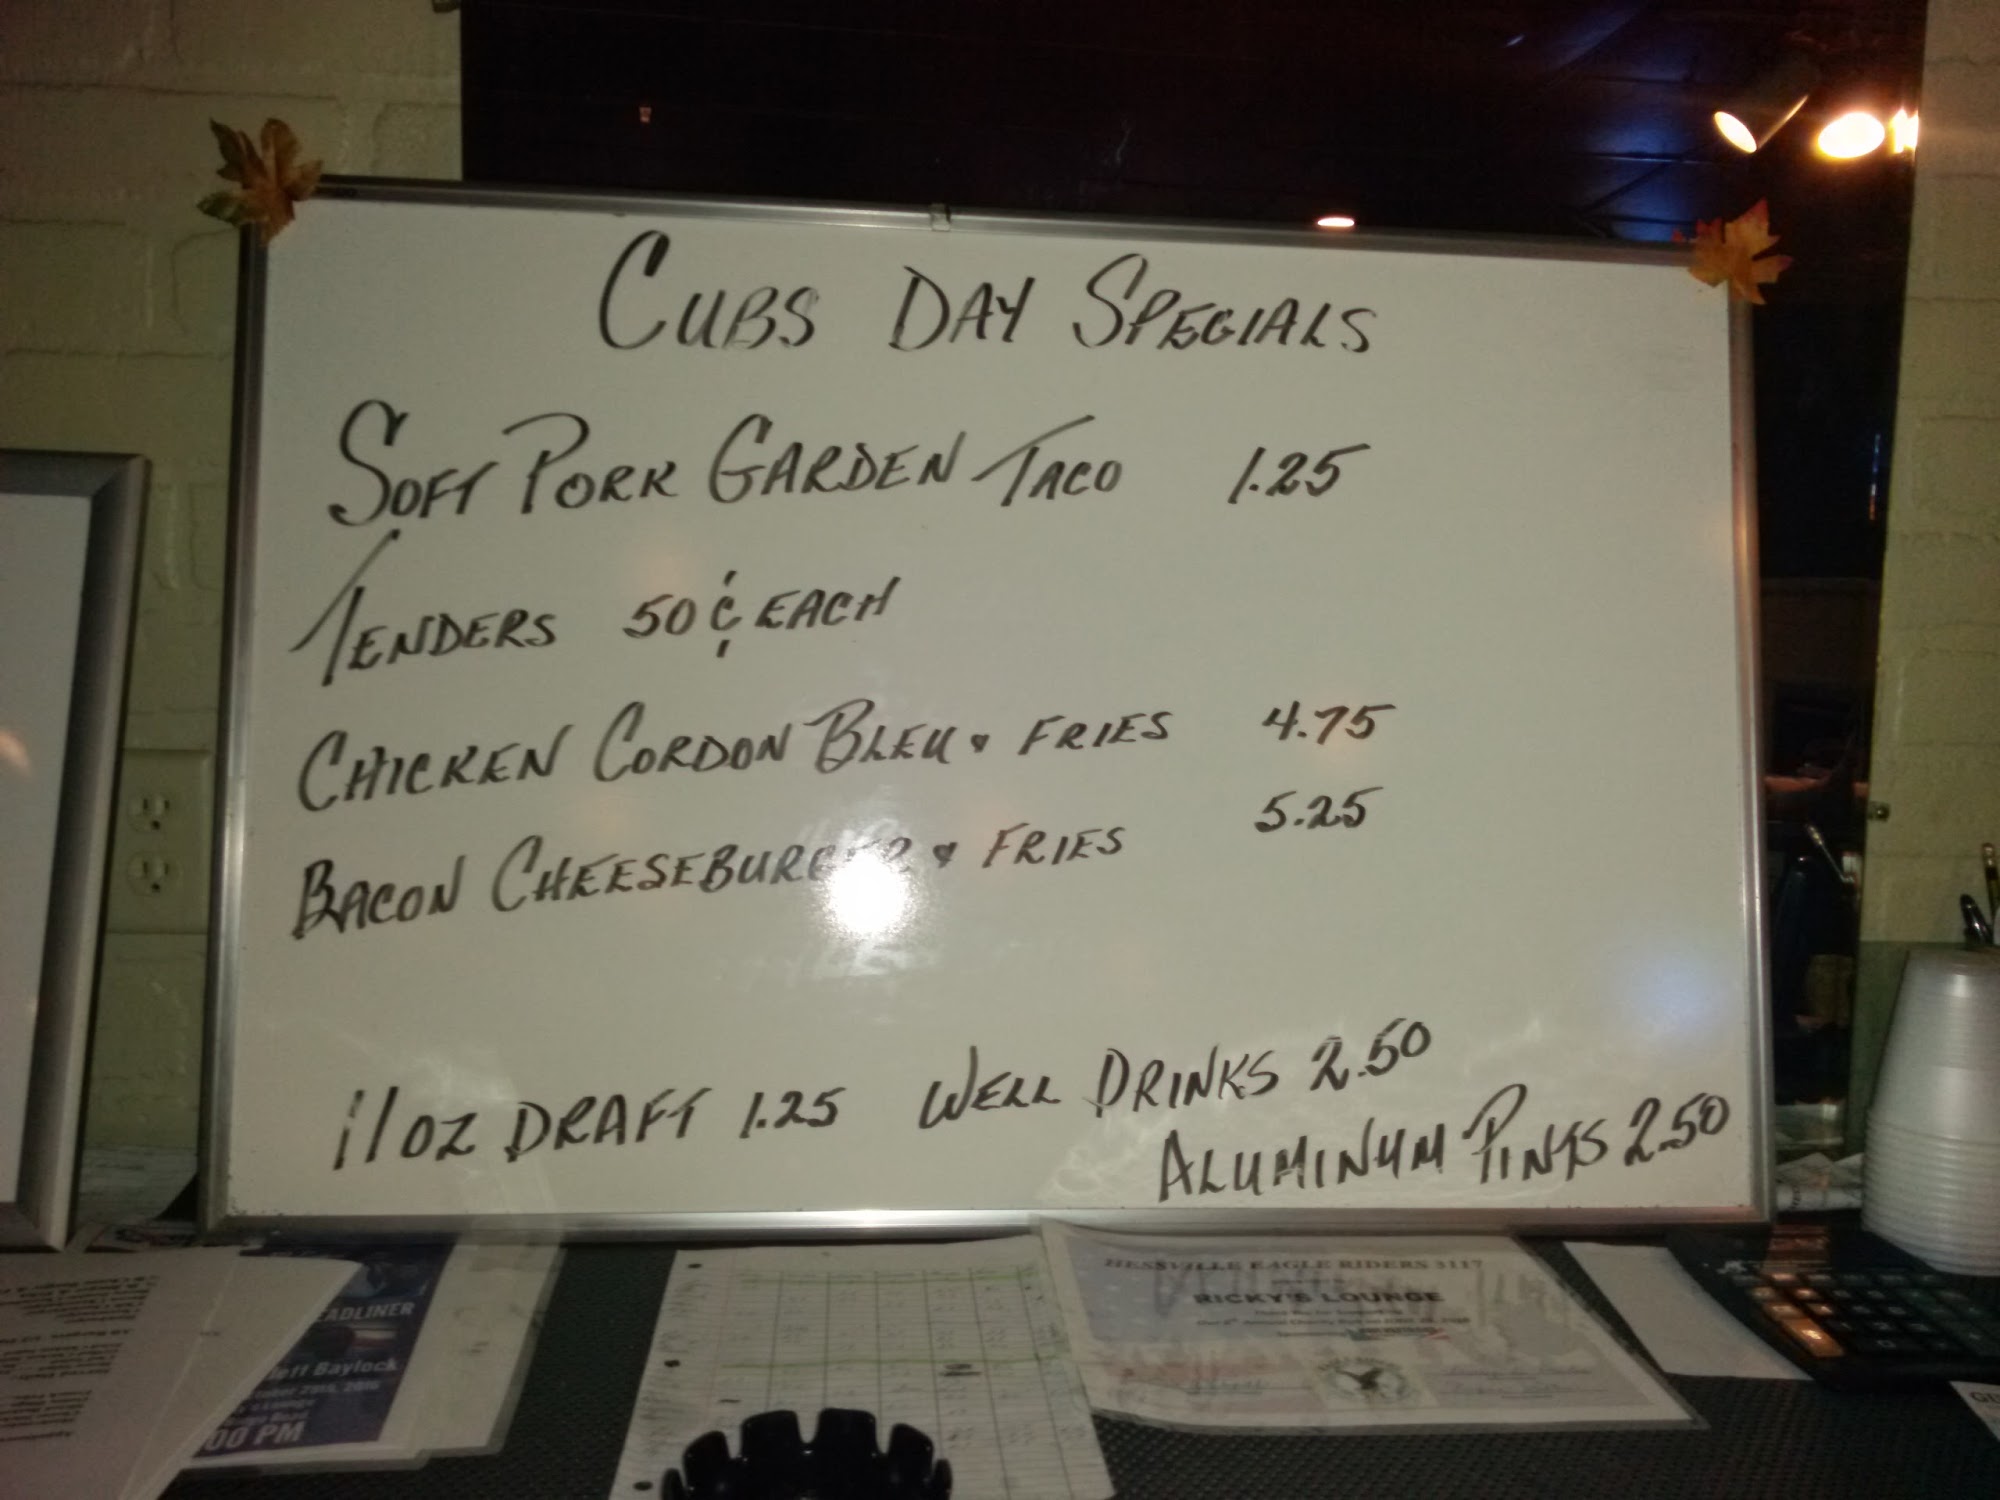 CUBS DAY SPECIALS
SOFT PORK GARDEN TACO 1.25
TENDERS 50¢ EACH
CHICKEN CORDON BLEU & FRIES 4.75
BACON CHEESEBURGER & FRIES 5.25
11 OZ DRAFT 1.25 WELL DRINKS 2.50
ALUMINUM PINTS 2.50
HESSVILLE EAGLE RIDERS 3117
RICKY'S LOUNGE
Jeff Baylock
00 PM